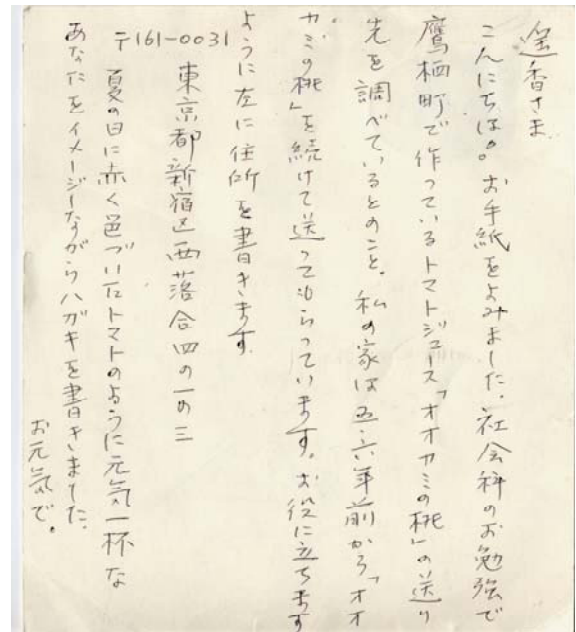 遥香さま
こんにちは。お手紙をよみました。社会科のお勉強で
鷹栖町で作っているトマトジュース「オオカミの桃」の送り
先を調べているとのこと、私の家は五・六年前から「オオ
カミの桃」を続けて送ってもらっています。お役に立ちます
ように左に住所を書きます。
〒161-0031
東京都新宿区西落合四の一の三
夏の日に赤く色づいたトマトのように元気一杯な
あなたをイメージしながらハガキを書きました。
お元気で。